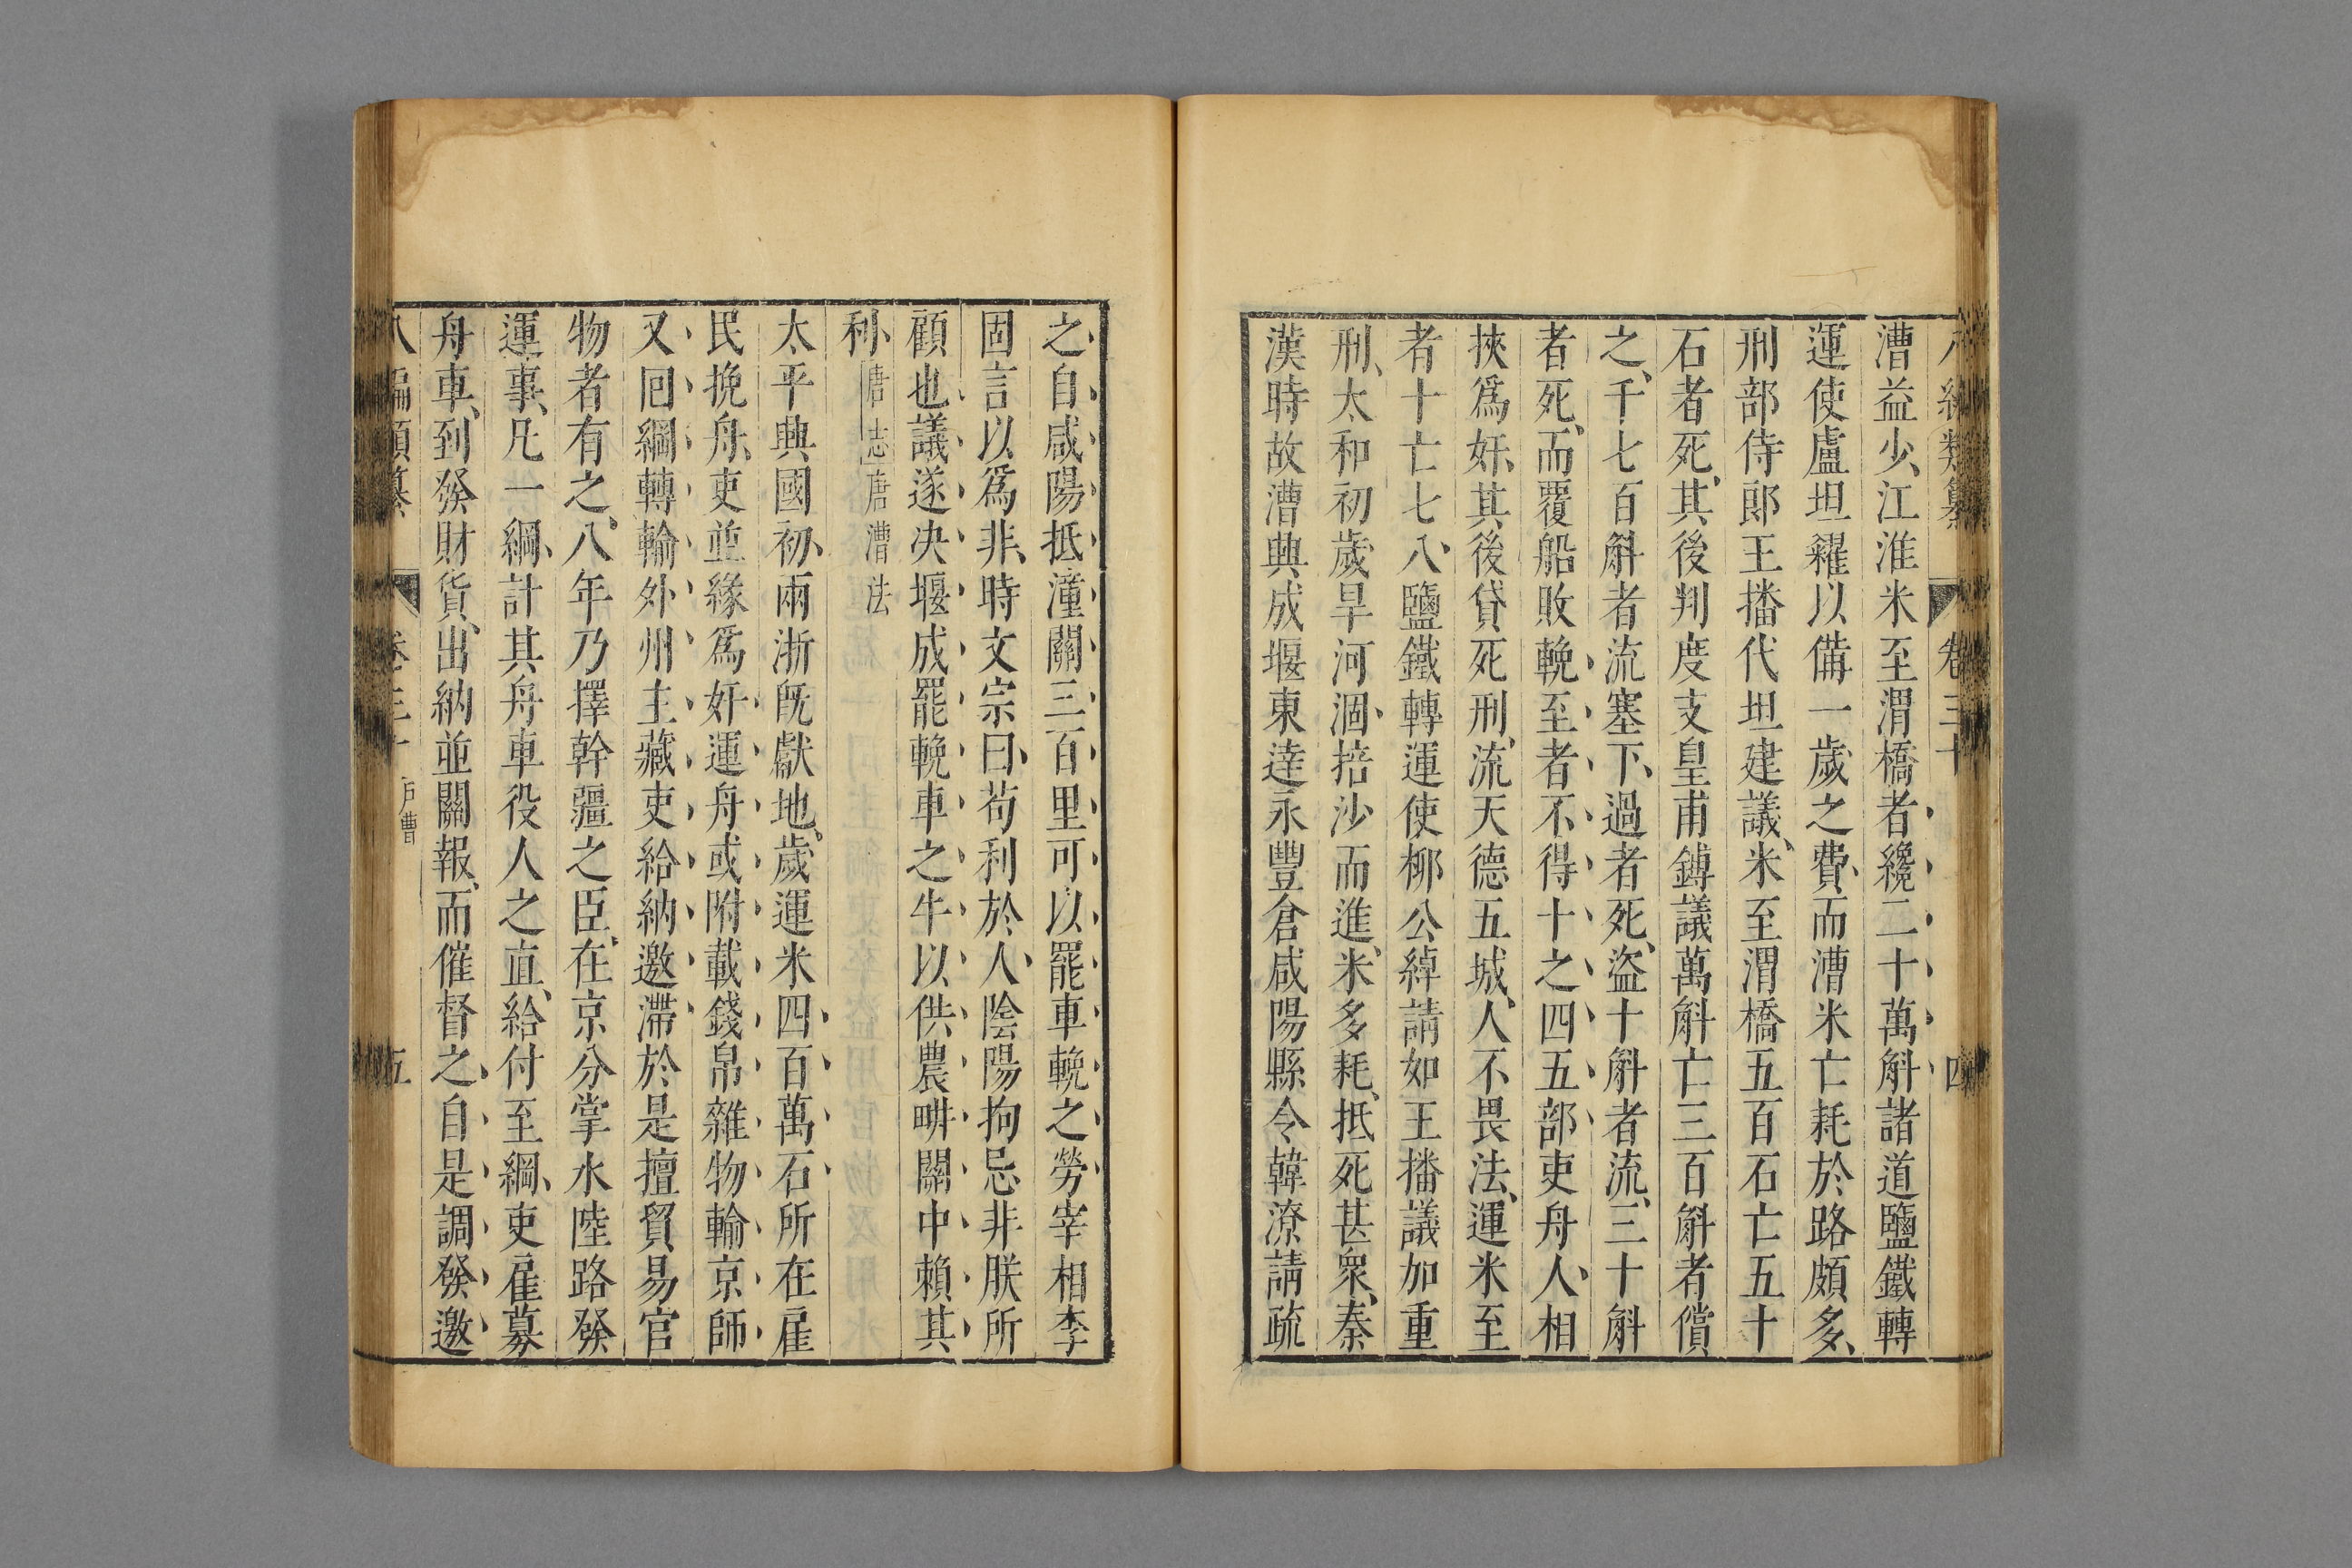 八編類纂 卷三十 四
漕益少、江淮米至渭橋者纔二十萬斛諸道鹽鐵轉
運使盧坦糴以備一歲之費、而漕米亡耗於路頗多、
刑部侍郎王播代坦建議、米至渭橋五百石亡五十
石者死、其後判度支皇甫鎛議萬斛亡三百斛者償
之、千七百斛者流塞下、過者死、盜十斛者流、三十斛
者死、而覆船敗輓至者不得十之四五部吏舟人、相
挾爲奸、其後貸死刑、流天德五城、人不畏法、運米至
者十亡七八、鹽鐵轉運使柳公綽請如王播議加重
刑、太和初歲旱河涸、掊沙而進、米多耗、抵死甚衆、秦
漢時故漕興成堰東達永豐倉咸陽縣令韓遼請疏
之自咸陽抵潼關三百里可以罷車輓之勞宰相李
固言以爲非、時文宗曰、苟利於人、陰陽拘忌非朕所
顧也議遂決堰成罷輓車之牛以供農畊關中賴其
利、唐志唐漕法
太平興國初、兩浙既獻地、歲運米四百萬石所在雇
民挽舟、吏並緣爲奸運舟或附載錢帛雜物輸京師
又囘綱轉輸外州主藏吏給納邀滯於是擅貿易官
物者有之、八年乃擇幹彊之臣、在京分掌水陸路發
運事、凡一綱、計其舟車役人之直、給付至綱、吏雇募
舟車、到發財貨、出納並關報、而催督之、自是調發邀
八編類纂 卷三十 戶曹 五